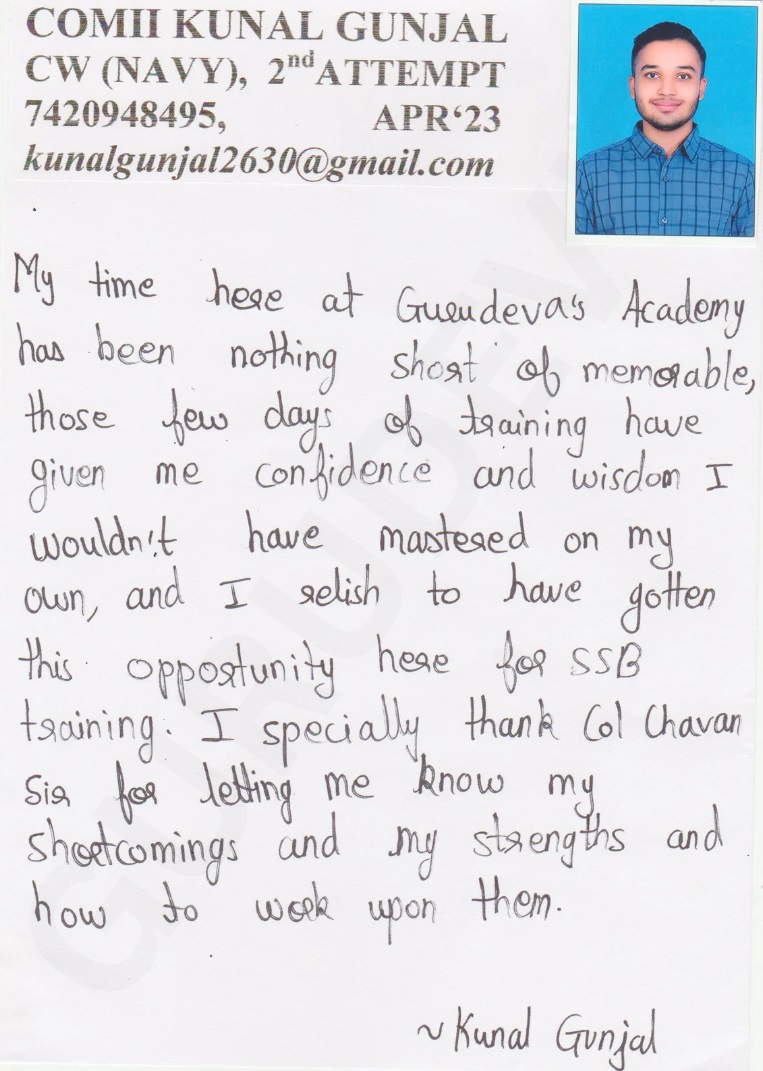 COMII KUNAL GUNJAL
CW (NAVY), 2nd ATTEMPT
7420948495, APR‘23
kunalgunjal2630@gmail.com
My time here at Gurudeva's Academy
has been nothing short of memorable,
those few days of training have
given me confidence and wisdom I
wouldn't have mastered on my
own, and I relish to have gotten
this opportunity here for SSB
training. I specially thank Col Chavan
Sir for letting me know my
shortcomings and my strengths and
how to work upon them.
~ Kunal Gunjal
GURUDEV